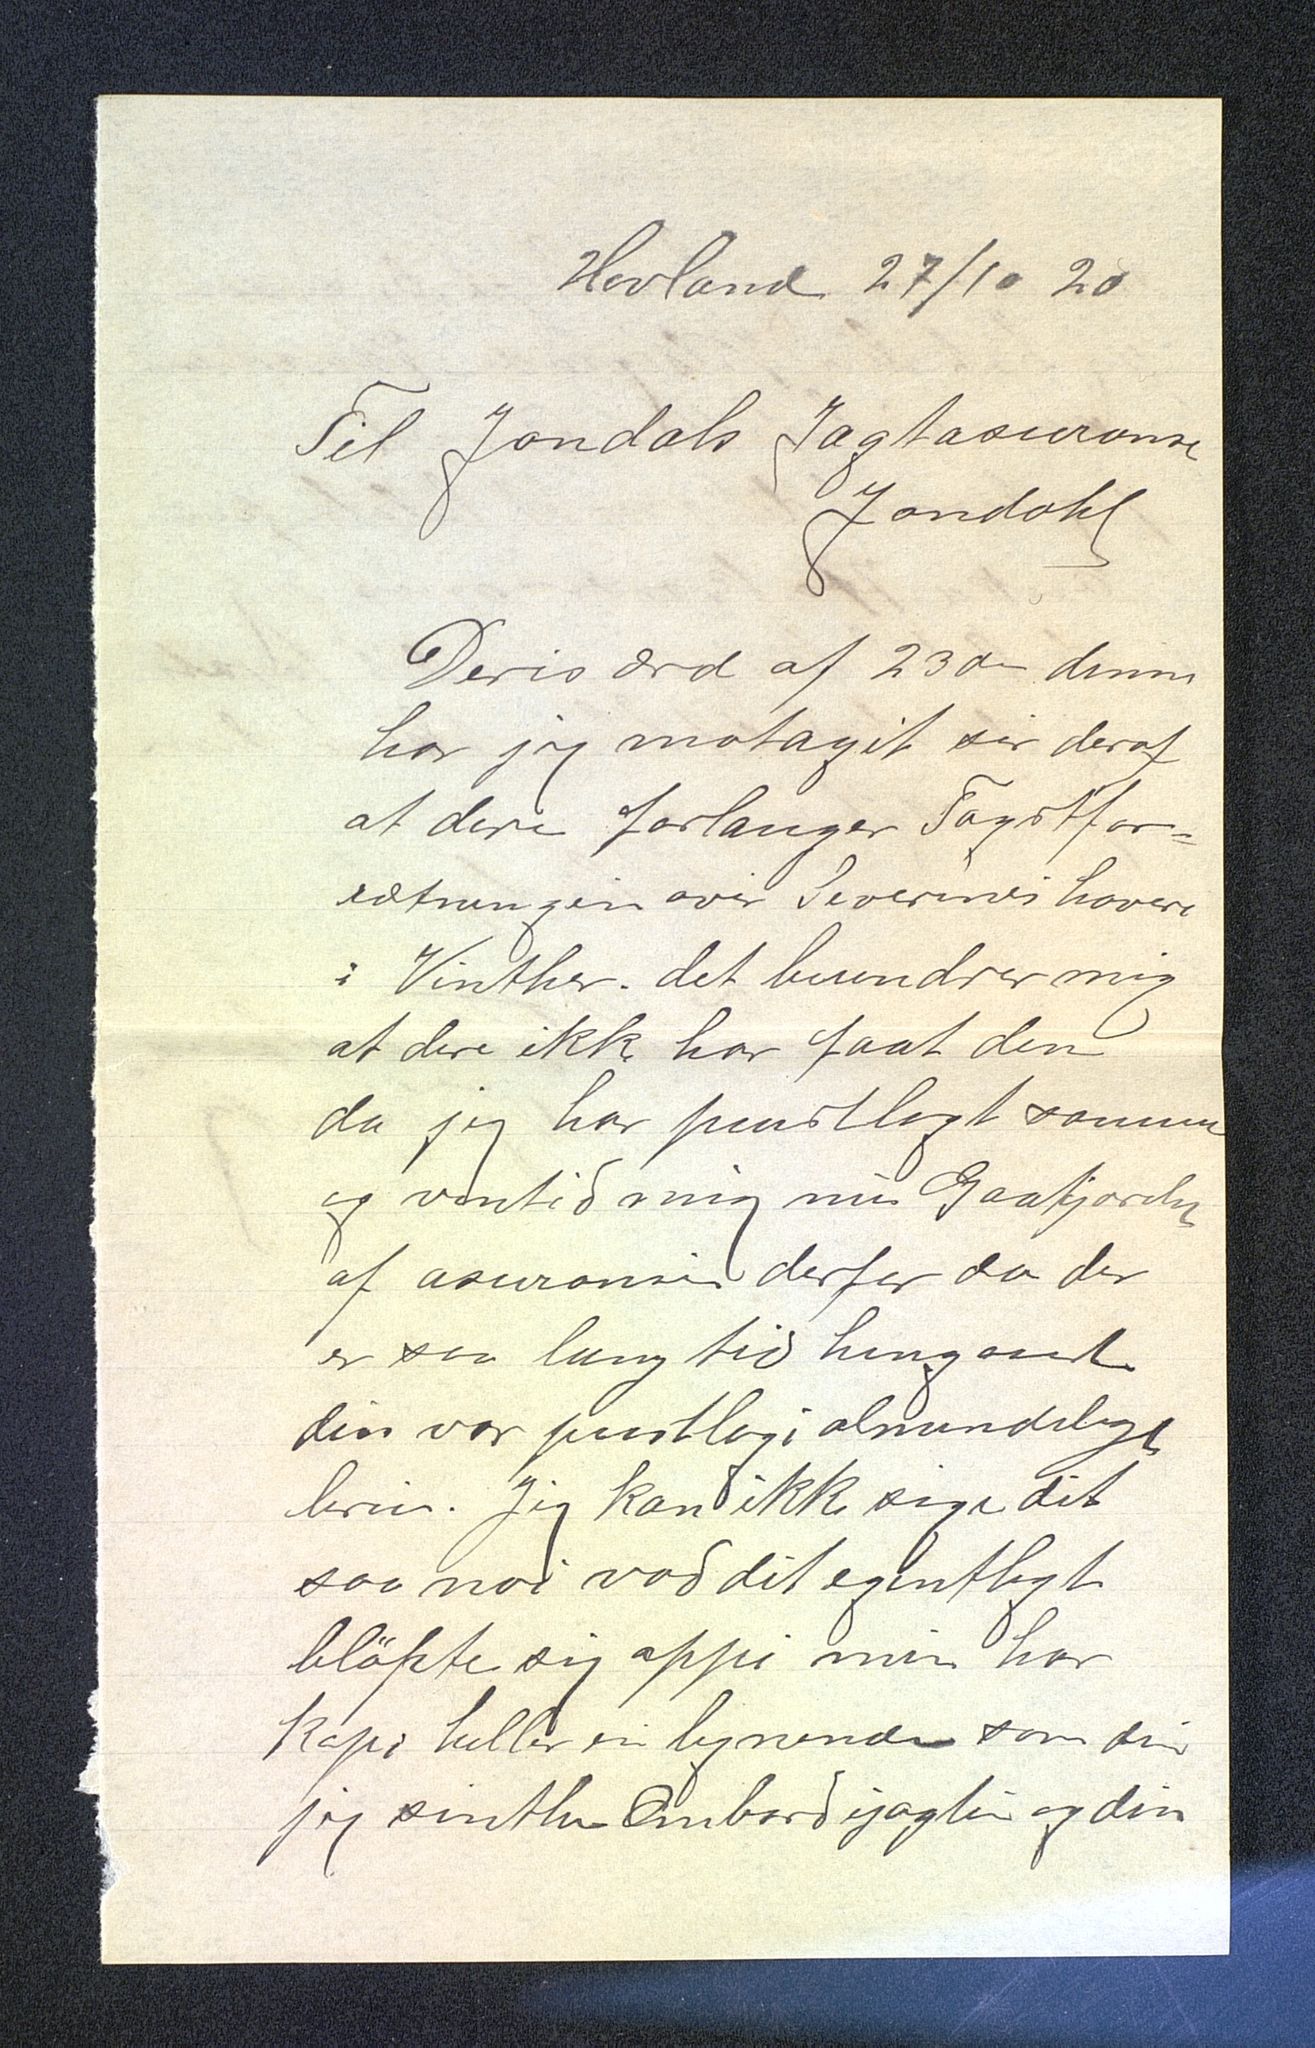 Hovland 27/10 20
Til Jondals Jagtasuranse
Jondahl
Deris ærd af 23de denne
har jeg motagit ser deraf
at dere forlanger Tagstfor-
rætningen over Severines havere
i Vinther. det beundrer mig
at dere ikke har faat den
da jeg har postlagt samme
og ventid mig
af asuransen derfor da der
er saa lang tid hengaaet
den var postlagi almindeligt
brev. Jeg kan ikke sige det
saa nøi vad det egentligt
bløfte sig oppi men har
kopi heller en lignende som den
jeg sendte Ombord i jagten og den